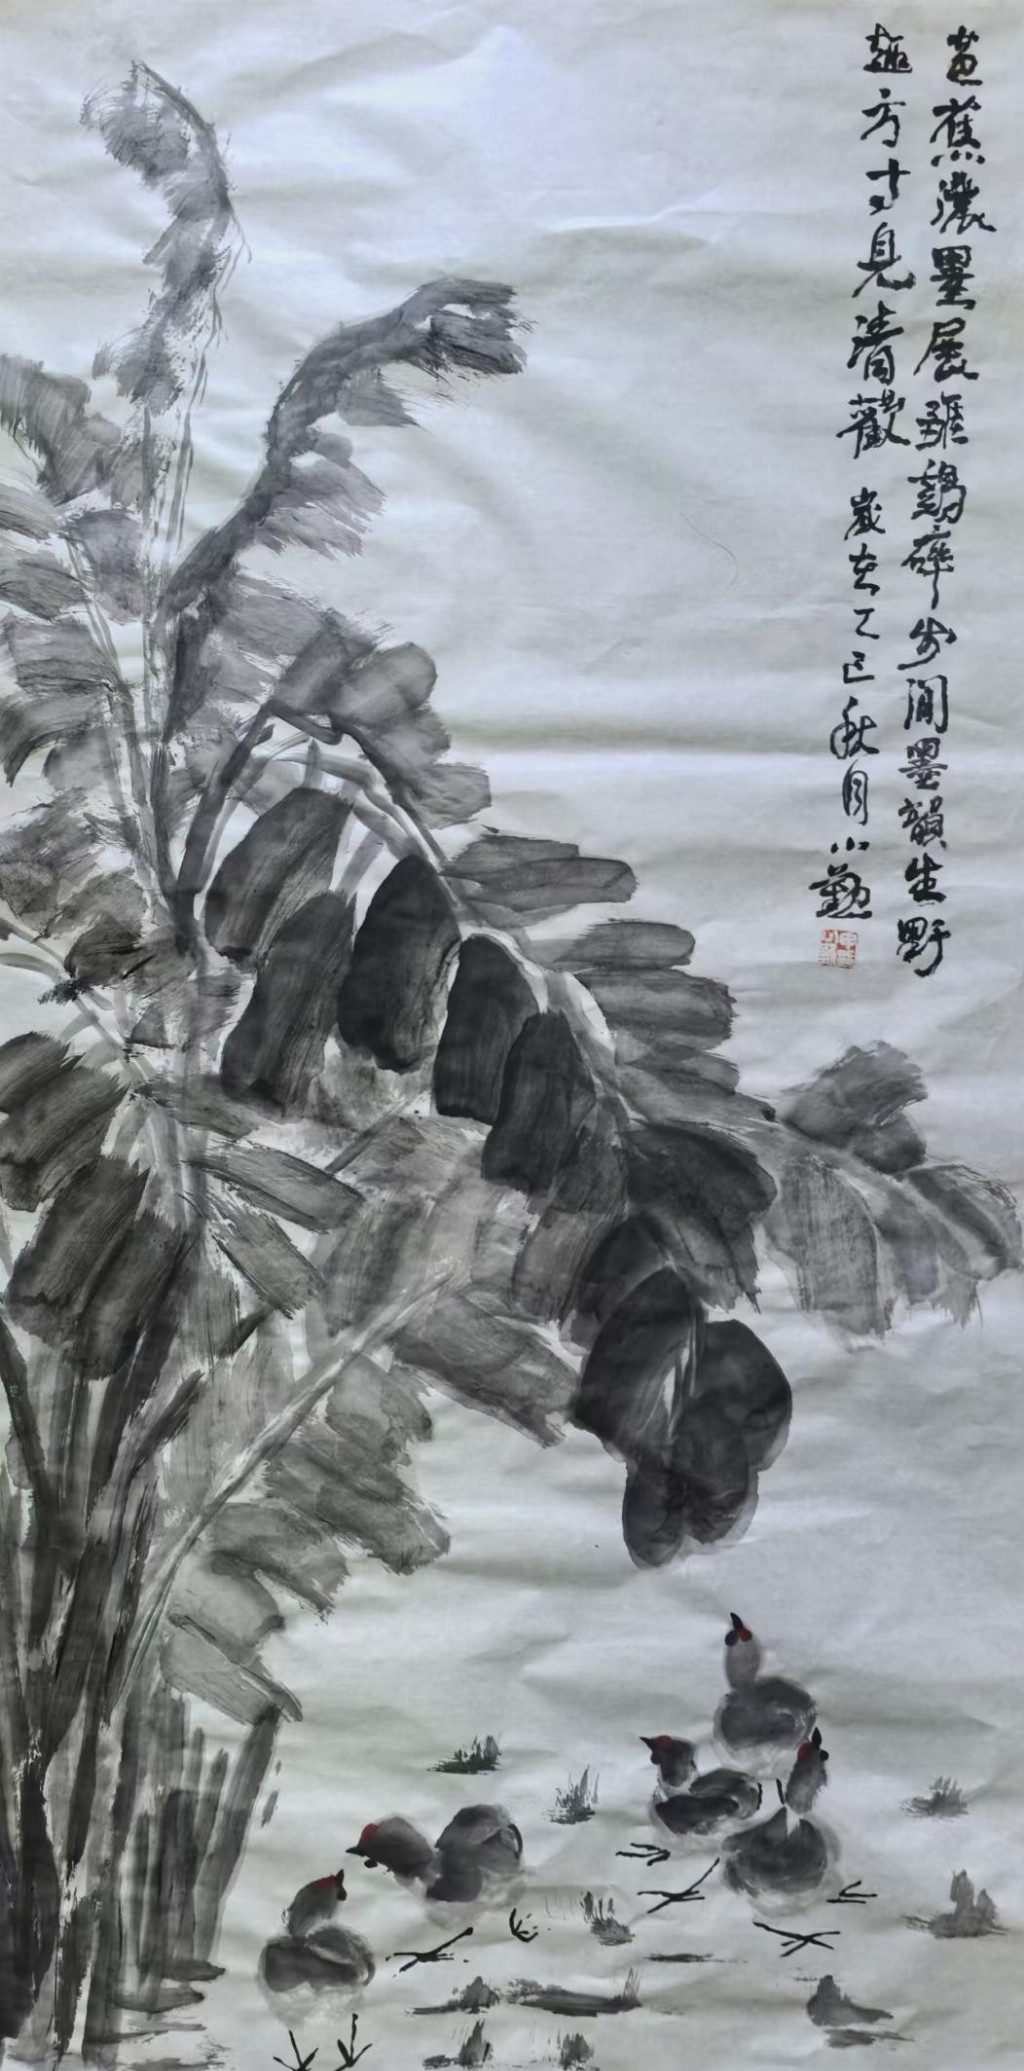 芭蕉濃墨展雞雛碎步間墨韻生野
趣方寸見清歡 歲在乙巳秋月小勤